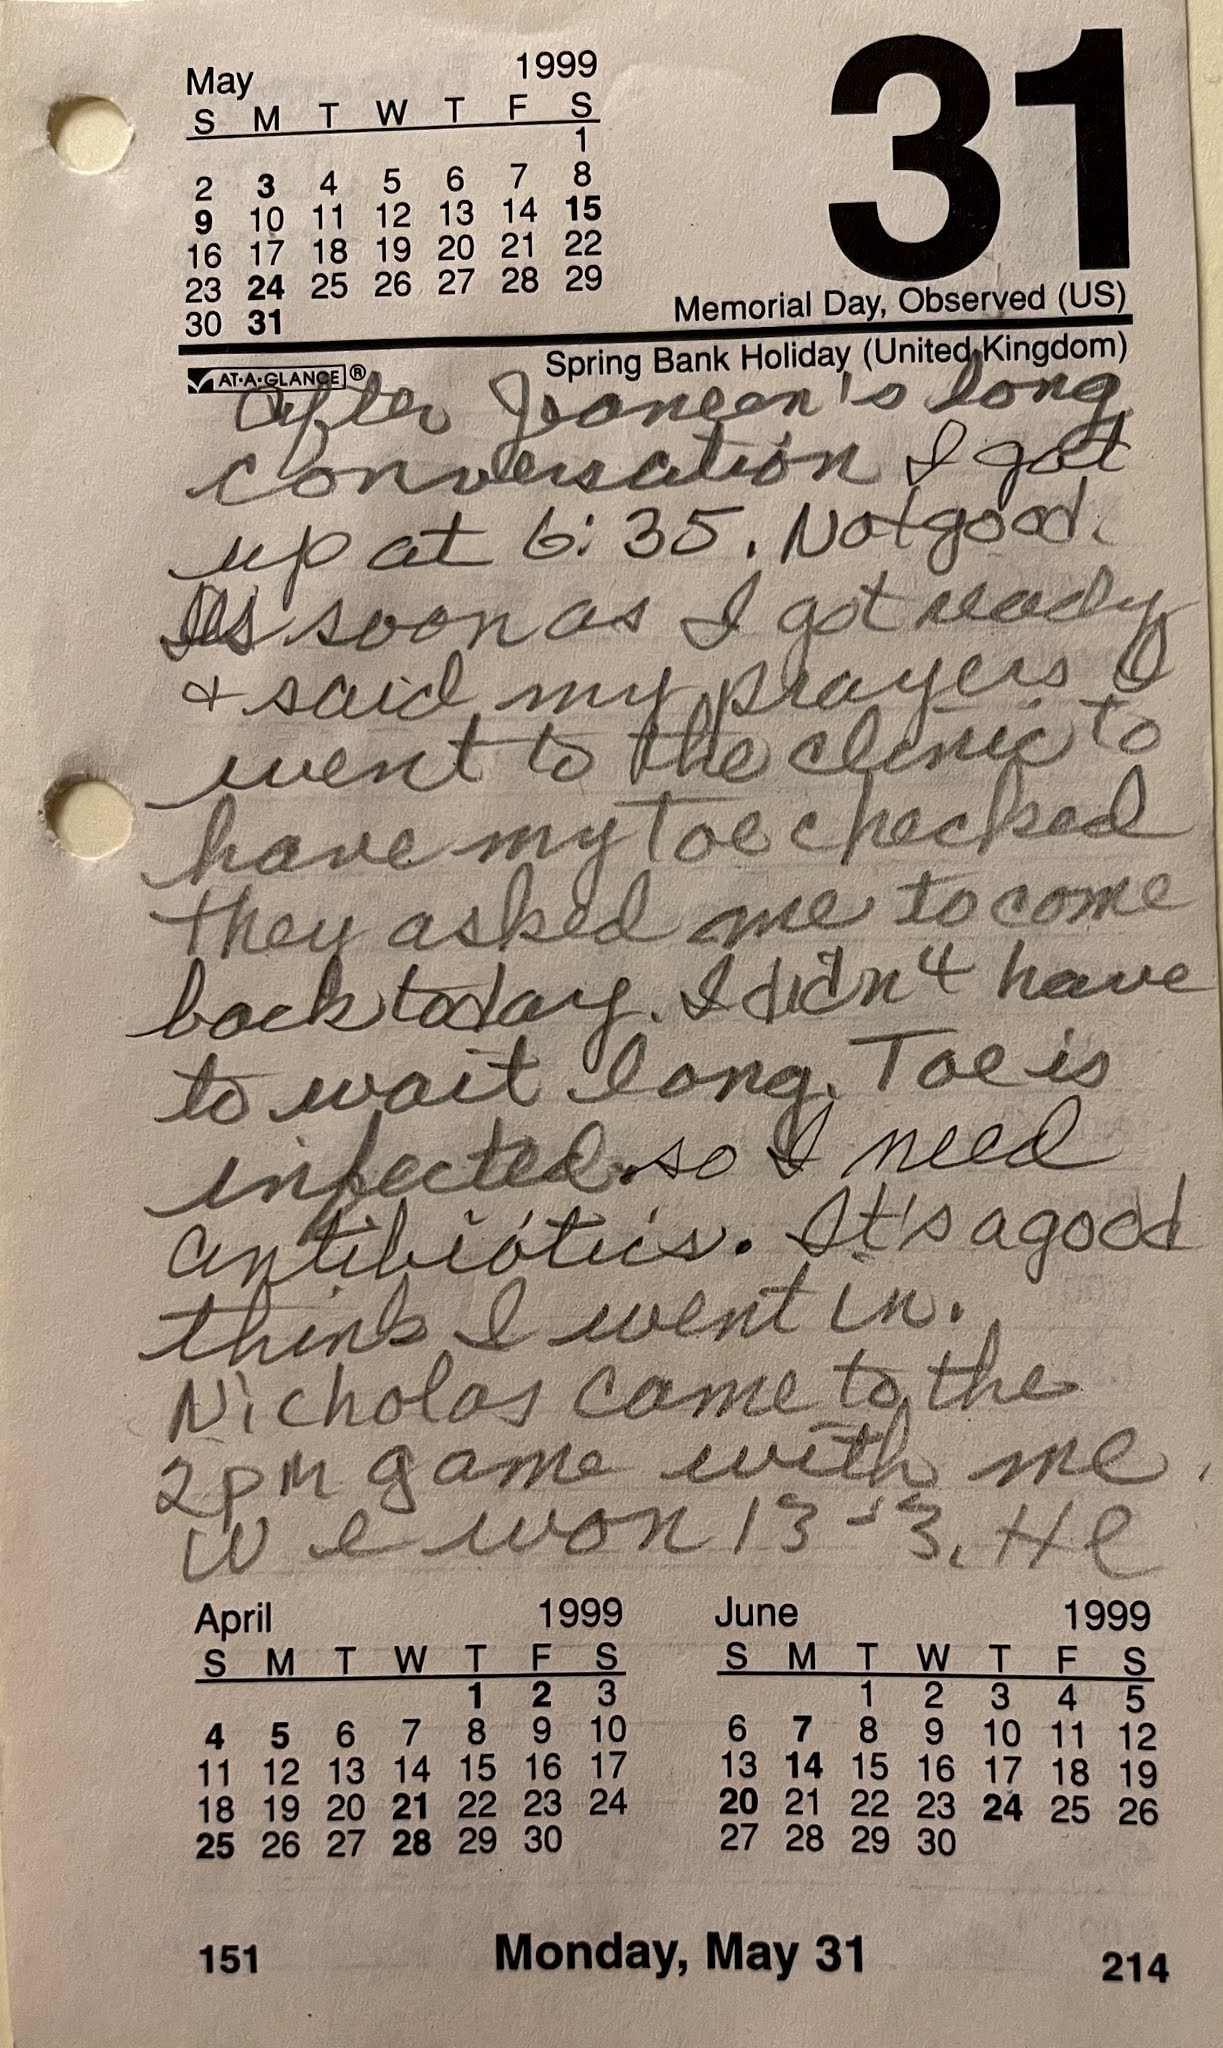 May 1999
S M T W T F S
1
2 3 4 5 6 7 8
9 10 11 12 13 14 15
16 17 18 19 20 21 22
23 24 25 26 27 28 29
30 31
31
Memorial Day, Observed (US)
Spring Bank Holiday (United Kingdom)
AT-A-GLANCE®
After Joaneen's long
conversation I got
up at 6:35. Not good.
As soon as I got ready
& said my prayers I
went to the clinic to
have my Toe checked
they asked me to come
back today. I didn't have
to wait long. Toe is
infected so I need
antibiotics. It's a good
think I went in.
Nicholas came to the
2pm game with me.
We won 13-3. He
April 1999
S M T W T F S
1 2 3
4 5 6 7 8 9 10
11 12 13 14 15 16 17
18 19 20 21 22 23 24
25 26 27 28 29 30
June 1999
S M T W T F S
1 2 3 4 5
6 7 8 9 10 11 12
13 14 15 16 17 18 19
20 21 22 23 24 25 26
27 28 29 30
151 Monday, May 31 214